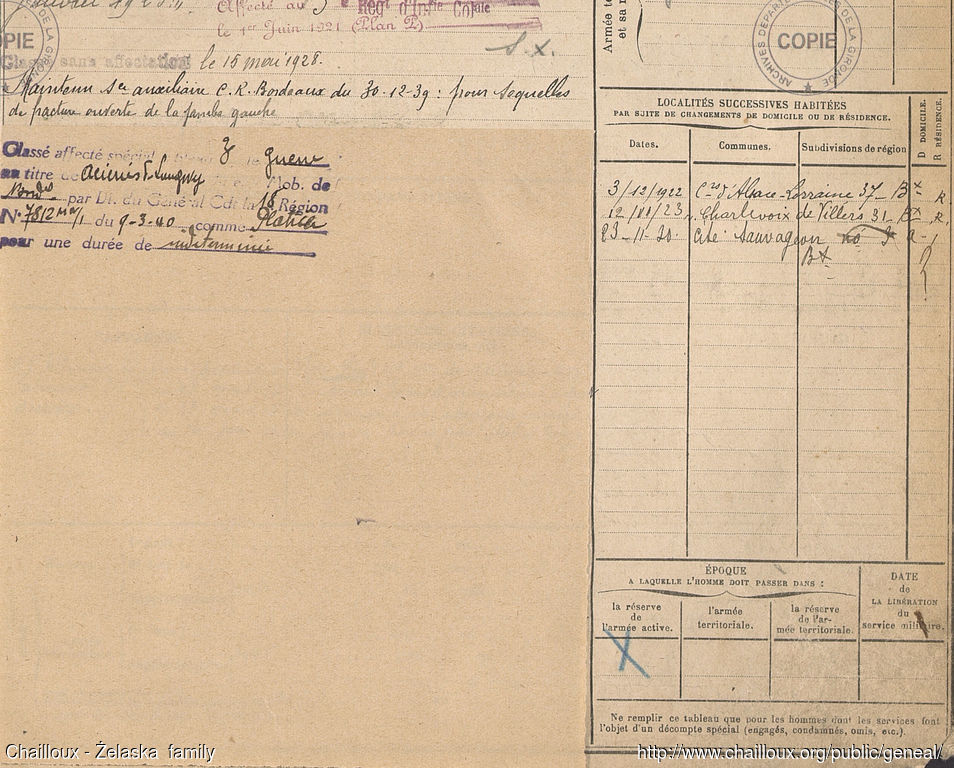 Affecté au
Régt d'Infie Colale
le 1er Juin 1921 (Plan P).
Classé sans affectation le 15 mai 1928.
S. X.
Maintenu Sce auxiliaire C. R. Bordeaux du 30-12-39 : pour sequelles
de fracture ouverte de la jambe gauche
Classé affecté spécial
guerre
au titre de
Mob. de
Bordx par D. du Général Cdt la 18 Région
du 9-3-40 comme
pour une durée de indéterminée
COPIE
Armée te
et sa r
ARCHIVES DÉPARTEMENTALES DE LA GIRONDE
COPIE
LOCALITÉS SUCCESSIVES HABITÉES
PAR SUITE DE CHANGEMENTS DE DOMICILE OU DE RÉSIDENCE.
D DOMICILE.
R RÉSIDENCE.
Dates. Communes. Subdivisions de région
3/12/1922 Crs d'Alsace-Lorraine 37 - Bx R
12/ /23 r. Charlevoix de Villers 31 - Bx R.
23-11-30. Cité Sauvageon
Bx
ÉPOQUE
A LAQUELLE L'HOMME DOIT PASSER DANS :
la réserve
de
l'armée active.
l'armée
territoriale.
la réserve
de l'ar-
mée territoriale.
DATE
de
LA LIBÉRATION
du
service militaire.
X
Ne remplir ce tableau que pour les hommes dont les services font
l'objet d'un décompte spécial (engagés, condamnés, omis, etc.).
Chailloux - Żelaska family
http://www.chailloux.org/public/geneal/